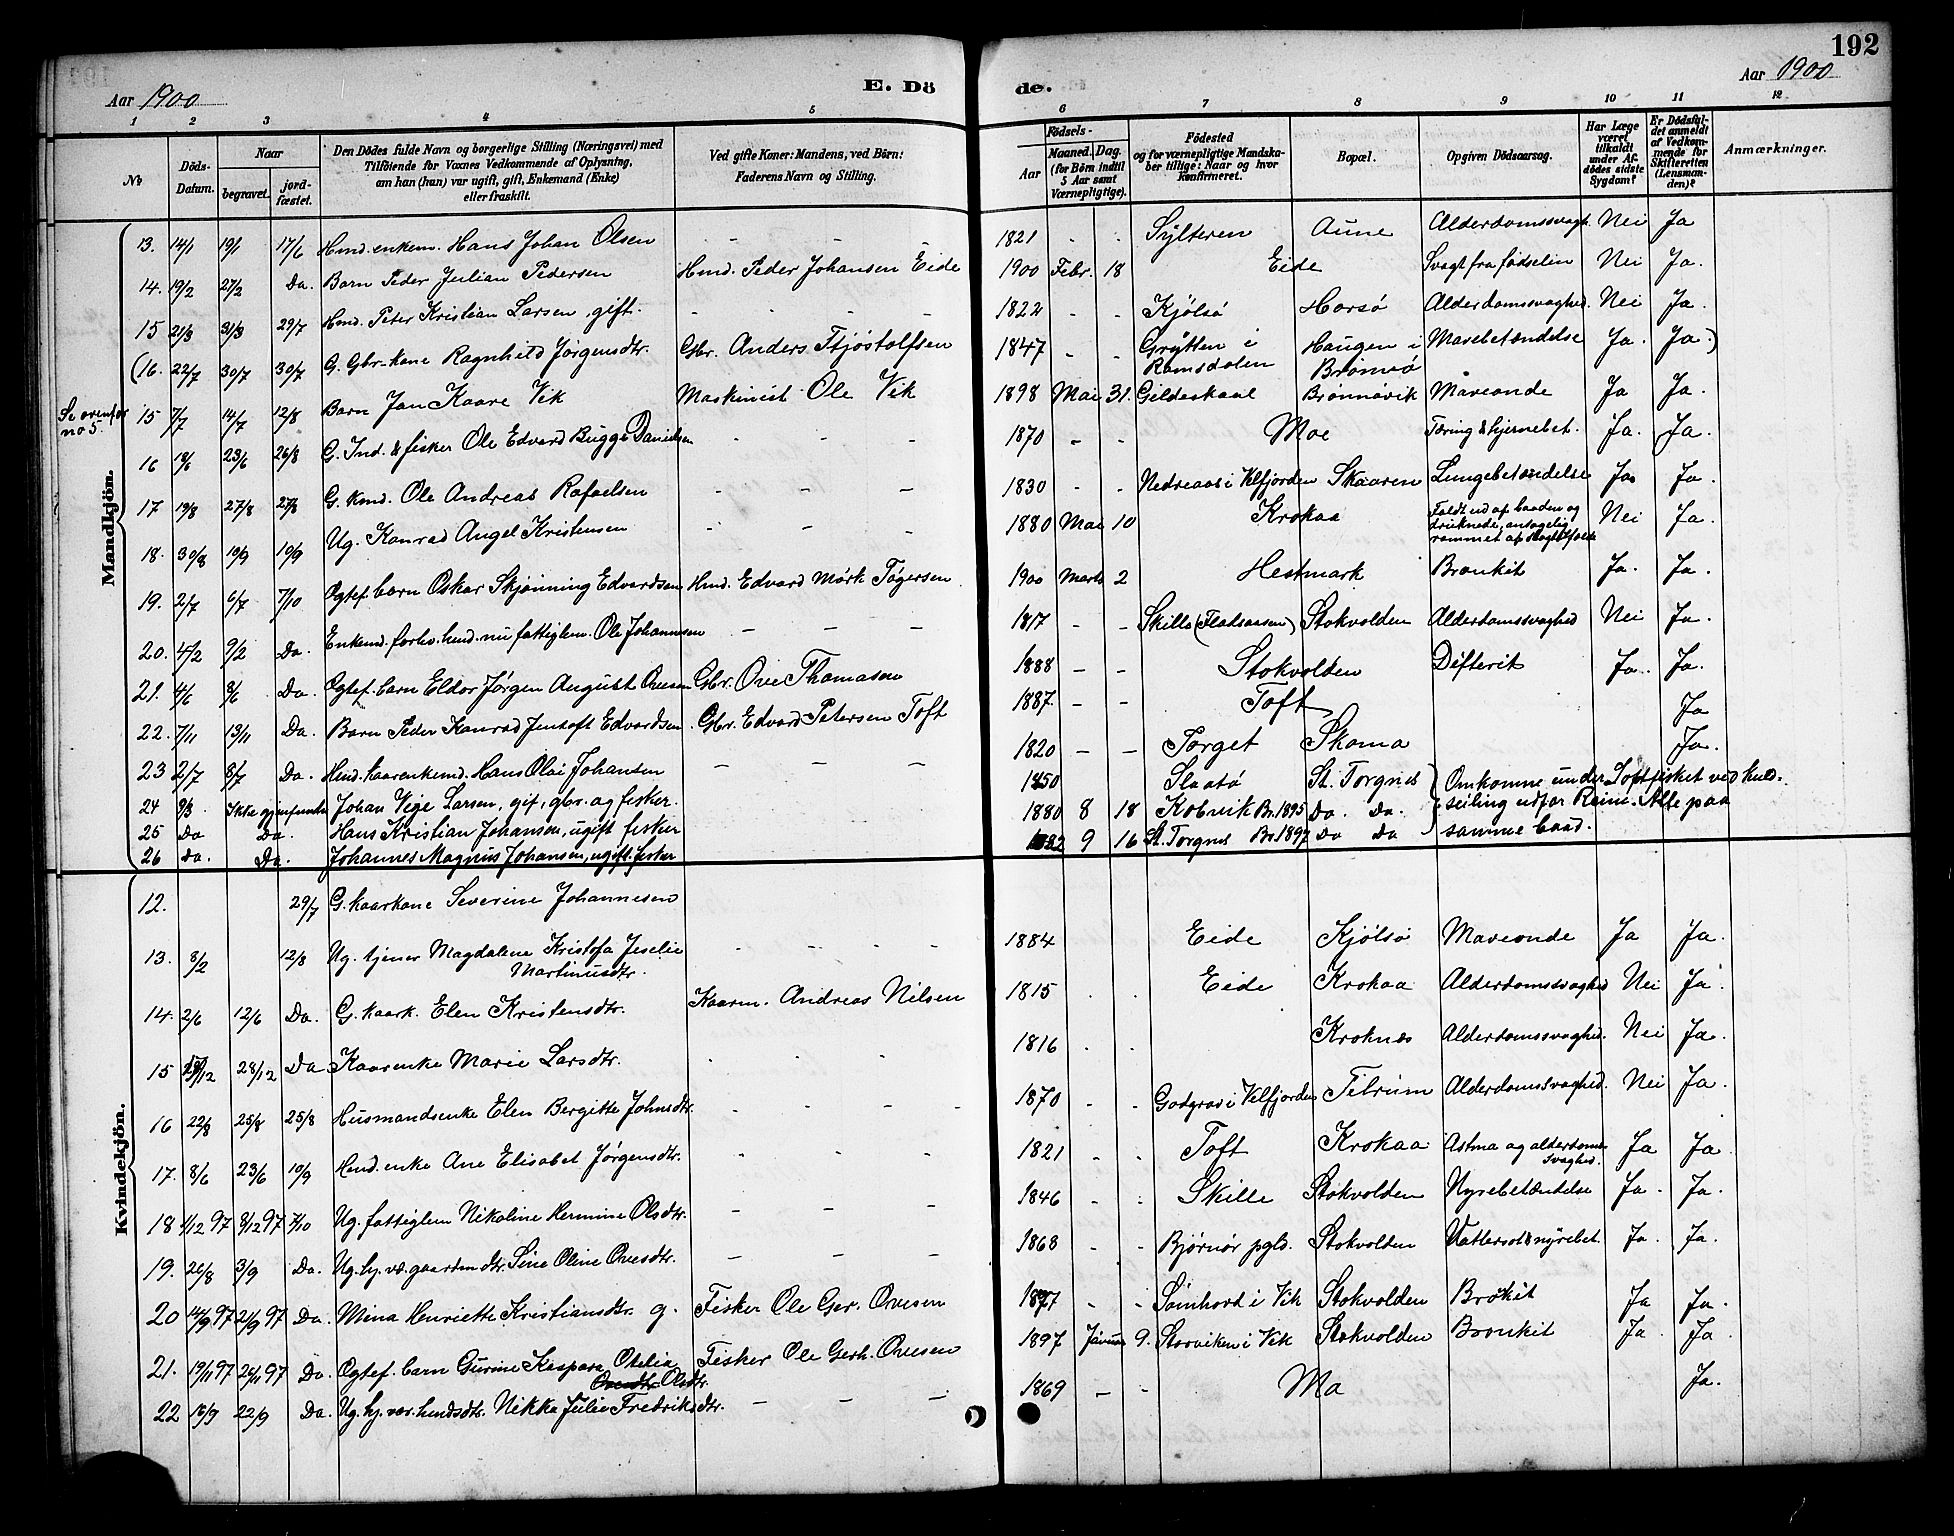 192
Aar 1900
E. Dö
de.
Aar 1900
1 2 3 4 5 6 7 8 9 10 11 12
No
Döds-Datum.
Naar
begravet.
jordfæstet.
Den Dödes fulde Navn og borgerlige Stilling (Næringsvei) med
Tilföiende for Voxnes Vedkommende af Oplysning,
om han (hun) var ugift, gift, Enkemand (Enke)
eller fraskilt.
Ved gifte Koner: Mandens, ved Börn:
Faderens Navn og Stilling.
Födsels-
Aar
Maaned. Dag.
(for Börn indtil
5 Aar samt
Værnepligtige).
Födested
og for værnepligtige Mandskaber tillige: Naar og hvor
konfirmeret.
Bopæl.
Opgiven Dödsaarsag.
Har Læge
været
tilkaldt
under Afdödes sidste
Sygdom?
Er Dödsfaldet anmeldt
af Vedkommende for
Skifteretten
(Lensmanden)?
Anmærkninger.
Mandkjön.
13. 14/1 19/1 17/6 Hmd. enkem. Hans Johan Olsen - - - 1821 - - Sylteren Aune Alderdomssvagh. Nei Ja
14. 19/2 27/2 Da. Barn Peder Julian Pedersen Hmd. Peder Johansen Eide 1900 Febr. 18 Eide Svagt fra fødselen Nei Ja.
15 21/3 31/3 29/7 Hmd. Peter Kristian Larsen, gift. - - - 1822 - - Kjölsö Horsö Alderdomssvaghed. Nei Ja.
(16. 22/7 30/7 30/7 G. Gbr-kone Ragnhild Jørgensdtr. Gbr. Anders Tjöstolfsen 1847 - - Grytten i Romsdalen Haugen i Brönnö Mavebetændelse Ja. Ja.)
Se ovenfor
no 5.
15 7/7 14/7 12/8 Barn Jan Kaare Vik Maskinist Ole Vik 1898 Mai 31. Gildeskaal Brønnøvik Maveonde Ja Ja.
16 18/6 23/6 26/8 G. Ind. & fisker Ole Edvard Bugge Danielsen - - - 1870 - - Moe Tæring & hjernebet. Ja. Ja.
17 19/8 27/8 27/8 G. Kmd. Ole Andreas Rafaelsen - - - 1830 - - Nedreaas i Velfjorden Skaaren Lungebetændelse Ja. Ja.
18. 30/8 10/9 10/9 Ug. Konrad Angel Kristensen - - - 1880 Mai 10 Krokaa Faldt ud af baaden og druknede, antagelig rammet af slagtilfælde Nei Ja.
19. 2/7 6/7 7/10 Ogtef. barn Oskar Skjønning Edvardsen Hmd. Edvard Mørk Tøgersen 1900 Marts 2 Hestmark Bronkit Ja. Ja.
20. 4/2 9/2 Da. Enkemd. forhv. hmd. nu fattiglem. Ole Johannsen - - - 1817 - - Skille (Fladaasen) Stokvolden Alderdomssvaghed Nei Ja.
21. 4/6 8/6 Da. Ogtef. barn Eldor Jørgen August Ovesen Gbr. Ove Thomasen 1888 - - Stokvolden Difterit Ja. Ja.
22. 7/11 13/11 Da. Barn Peder Konrad Jentoft Edvardsen. Gbr. Edvard Petersen Toft 1887. - - Toft Ja
23 2/7 8/7 Da. Hmd. kaarenkemd. Hans Olai Johansen - - - 1820 - - Torget Skoma Ja.
24 9/3 Ikke gjenfunden Johan Vige Larsen, gif, gbr. og fisker. 1850 Slaatø St. Torgnes Omkomne under Lofotfisket ved kuld-
25 Da Da. Hans Kristian Johansen, ugift fisker 1880 8 18 Kobvik Br. 1895 Da. Da. seiling udfor Reine. Alle paa
26 Da. Da. Johannes Magnus Johansen, ugift. fisker 1882 9 16 St. Torgnes Br. 1897 Da Da samme baad.
Kvindekjön.
12. 29/7 G. kaarkone Severine Johannesen
13. 8/2 12/8 Ug. tjener Magdalene Kristofa Jeselie Martinusdtr. - - - 1884 Eide Kjölsö Maveonde Ja Ja.
14. 2/6 12/6 Da. G. kaark. Elen Kristensdtr. Kaarm. Andreas Nilsen 1815 . . Eide Krokaa Alderdomssvaghed Nei Ja.
15 /12 28/12 Da Kaarenke Marie Larsdtr. . . . 1816 . . Kroknes Alderdomssvaghed. Nei Ja.
16 22/8 25/8 25/8 Husmandsenke Elen Bergitte Johnsdtr. - - - 1870 - - Godgras i Velfjorden Tilrum Alderdomssvaghed. Nei Ja.
17. 8/6 23/6 10/9 Hmd. enke Ane Elisabet Jørgensdtr. - - - 1821 - - Toft Krokaa Astma og alderdomssvaghed. Ja Ja.
18 1/12 97 8/12 97 7/10 Ug. fattiglem Nikoline Hermine Olsdtr. - - - 1846 - - Skille Stokvolden Nyrebetændelse Ja. Ja.
19. 26/8 3/9 Da. Ug. hj. væ. gaardm.dtr. Sine Oline Ovesdtr. - - - 1868 - - Bjørnør pgld. Stokvolden Vattersot & nyrebet. Ja. Ja.
20 14/9 97 21/9 97 Da. Mina Henriette Kristiansdtr. g. Fisker Ole Ger. Ovesen 1877 - - Sømhovd i Vik Stokvolden Brokit Ja Ja.
21. 19/11 97 26/11 97 Da. Ogtef. barn Gurine Kaspara Otelia Ovesdtr. Olsdtr. Fisker Ole Gerh. Ovesen 1897 Januar 9. Storviken i Vik Stokvolden Bronkit Ja Ja
22 18/9 22/9 Da. Ug. hj. vær. hmdsdtr. Nikka Julie Fredriksdtr. - - - 1869 - - Mo Ja.